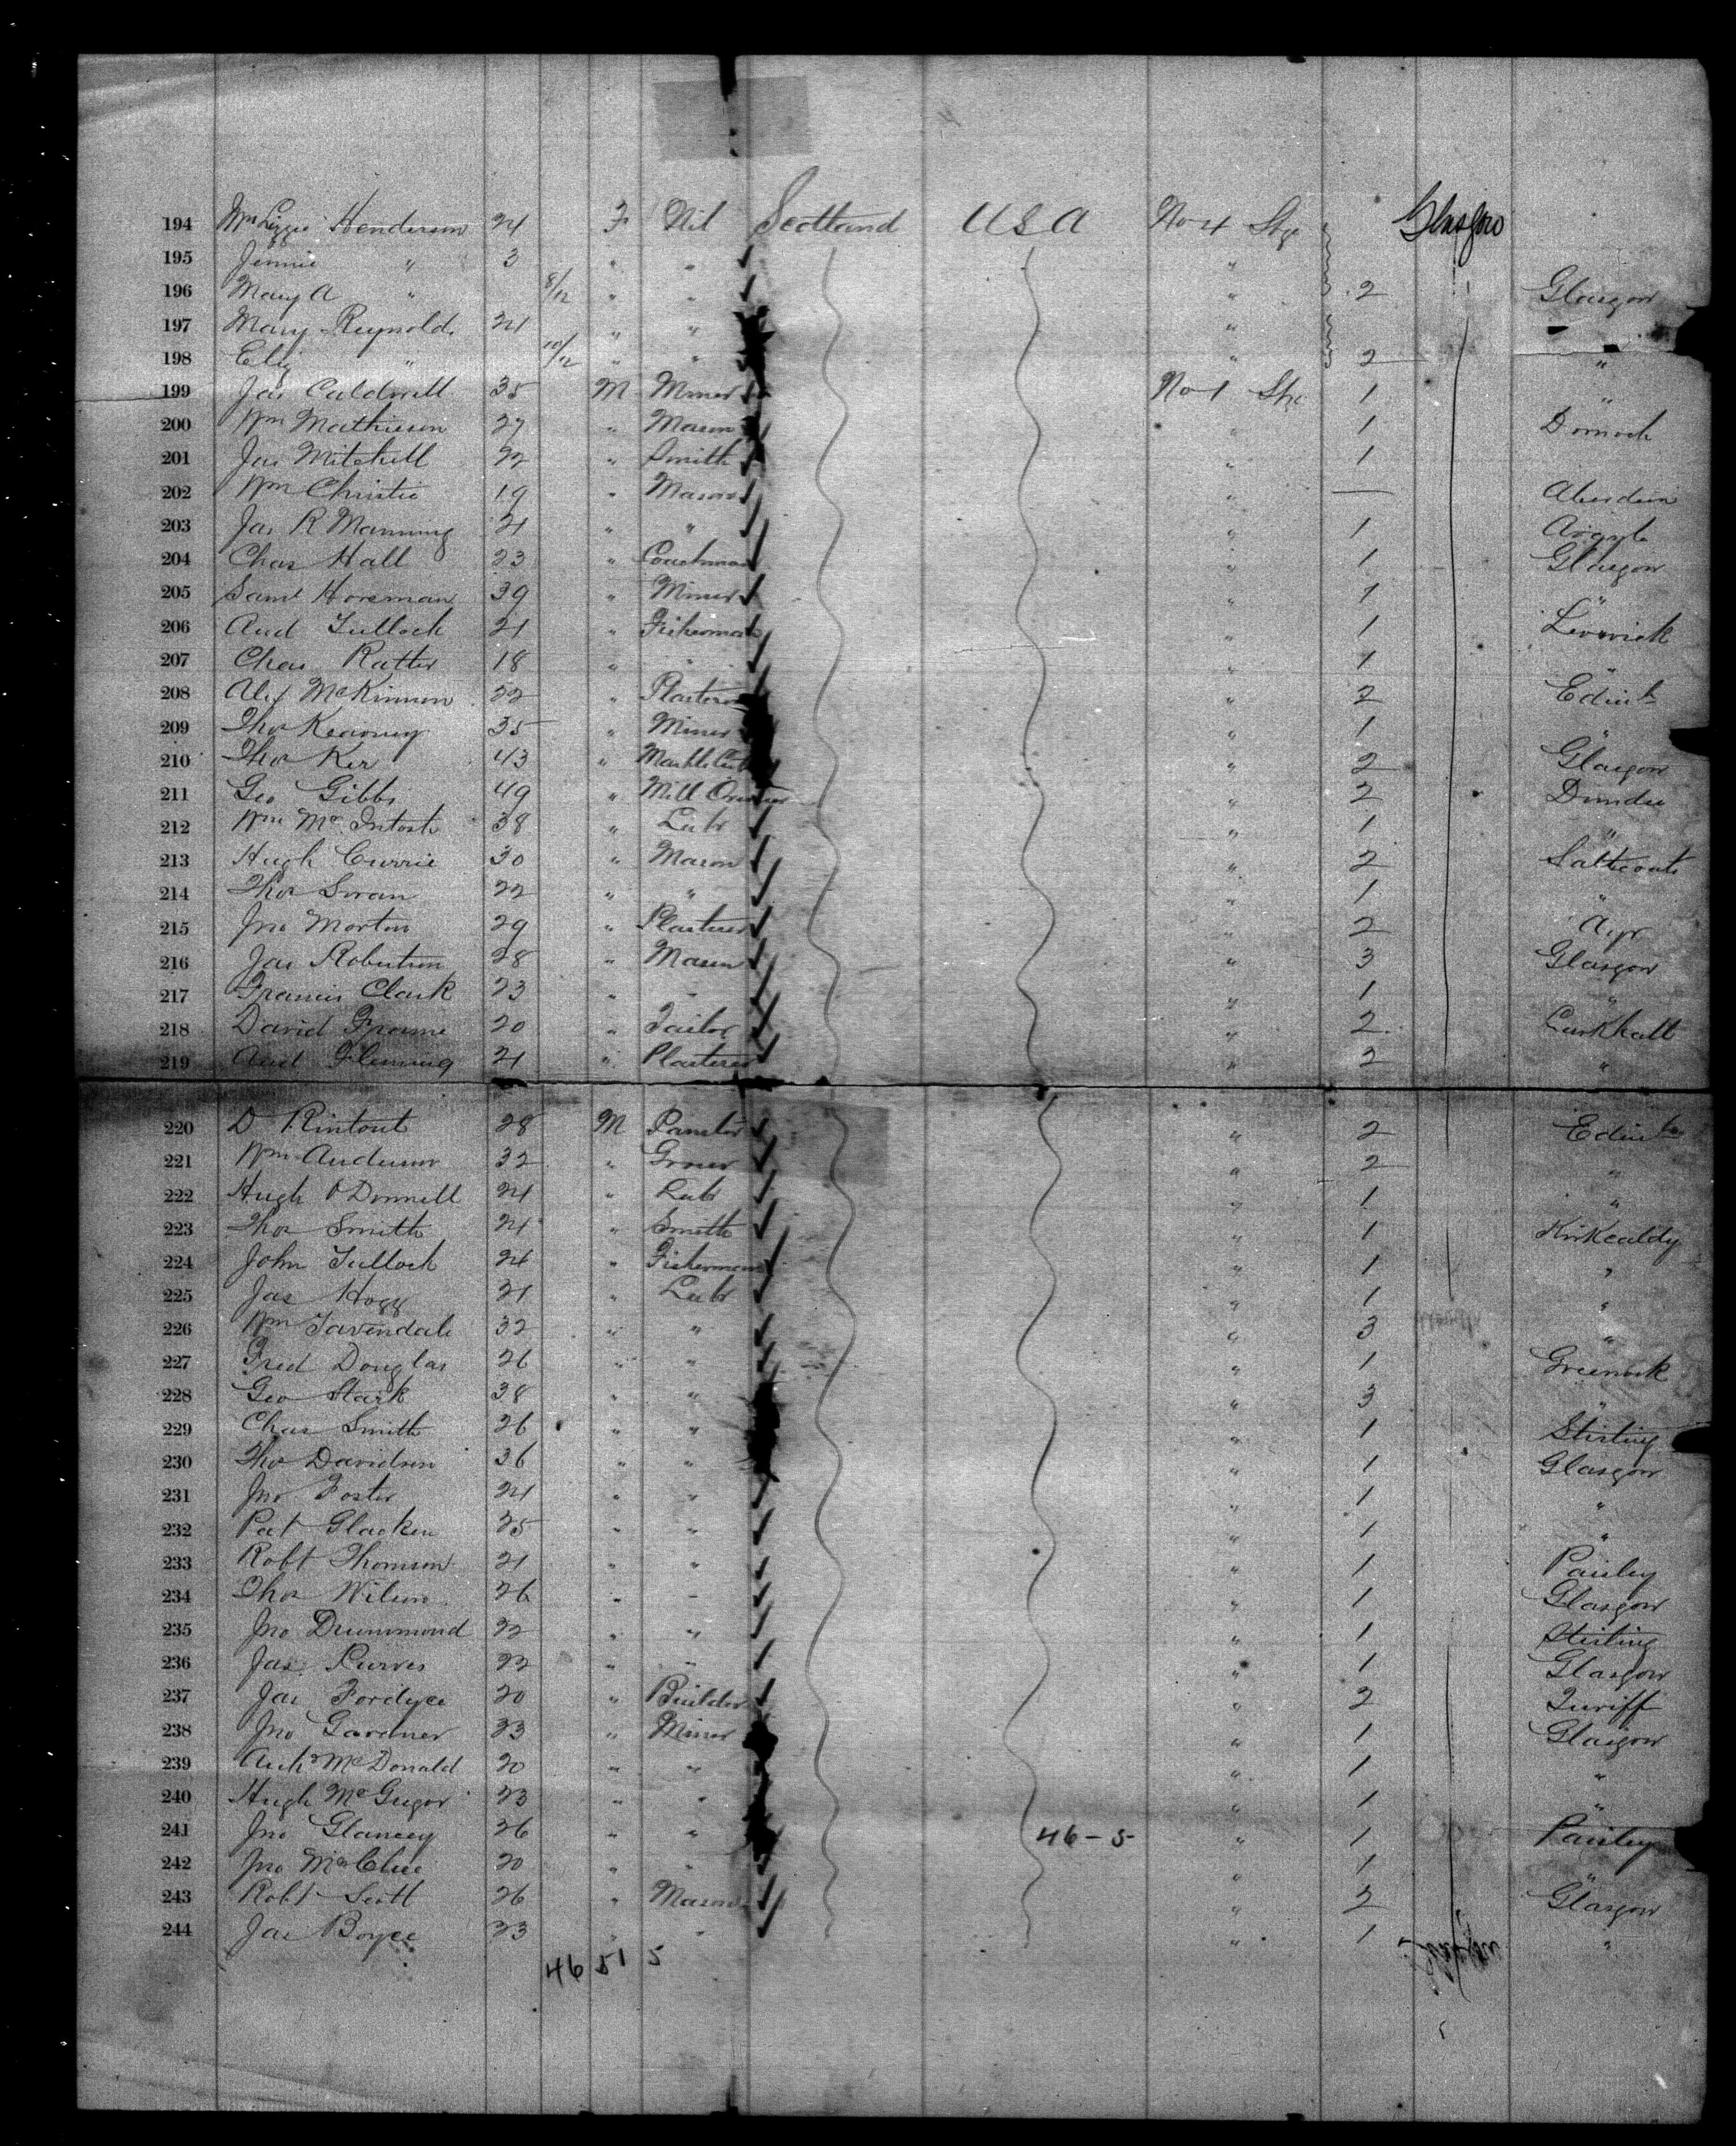 194 Mrs Lizzie Henderson 24 F Nil Scotland USA No 4 Stge Glasgow
195 Jennie " 3 " " "
196 Mary A " 8/12 " " " 2 Glasgow
197 Mary Reynolds 24 " " "
198 Eliz " 10/12 " " " 2 "
199 Jas Caldwell 35 M Miner No 1 Stge 1 "
200 Wm Mathieson 27 " Mason " 1 Dornoch
201 Jas Mitchell 22 " Smith " 1
202 Wm Christie 19 " Mason " — Aberdeen
203 Jas R Manning 21 " " " 1 Argyle
204 Chas Hall 23 " Coachman " 1 Glasgow
205 Saml Horsman 39 " Miner " 1 "
206 And Tulloch 21 " Fisherman " 1 Lerwick
207 Chas Ratter 18 " " " 1
208 Alex McKinnon 22 " Plasterer " 2 Edinb
209 Thos Kearney 35 " Miner " 1 "
210 Thos Ker 43 " Marble Cutter " 2 Glasgow
211 Geo Gibbs 49 " Mill " 2 Dundee
212 Wm McIntosh 38 " Labr " 1 "
213 Hugh Currie 30 " Mason " 2 Saltcoats
214 Thos Swan 22 " " " 1 "
215 Jno Morton 29 " Plasterer " 2 Ayr
216 Jas Robertson 28 " Mason " 3 Glasgow
217 Francis Clark 23 " " " 1 "
218 David Frame 20 " Tailor " 2 Larkhall
219 And Fleming 21 " Plasterer " 2 "
220 D Rintout 28 M Painter " 2 Edinb
221 Wm Anderson 32 " Grocer " 2 "
222 Hugh O'Donnell 24 " Labr " 1 "
223 Thos Smith 21 " Smith " 1 Kirkcaldy
224 John Tulloch 24 " Fisherman " 1 "
225 Jas Hogg 21 " Labr " 1 "
226 Wm Tavendale 32 " " " 3 "
227 Fred Douglas 26 " " " 1 Greenock
228 Geo Stark 38 " " " 3 "
229 Chas Smith 26 " " " 1 Stirling
230 Thos Davidson 36 " " " 1 Glasgow
231 Jno Foster 24 " " " 1 "
232 Pat Glacken 25 " " " 1 "
233 Robt Thomson 21 " " " 1 Paisley
234 Thos Wilson 26 " " " 1 Glasgow
235 Jno Drummond 22 " " " 1 Stirling
236 Jas Purves 22 " " " 1 Glasgow
237 Jas Fordyce 20 " Builder " 2 Turiff
238 Jno Gardner 23 " Miner " 1 Glasgow
239 Archd McDonald 20 " " " 1 "
240 Hugh McGregor 23 " " " 1 "
241 Jno Glancey 26 " " 46-5 " 1 Paisley
242 Jno McClue 20 " " " 1 "
243 Robt Scott 26 " Mason " 2 Glasgow
244 Jas Boyce 23 " " " 1 "
46 51 5